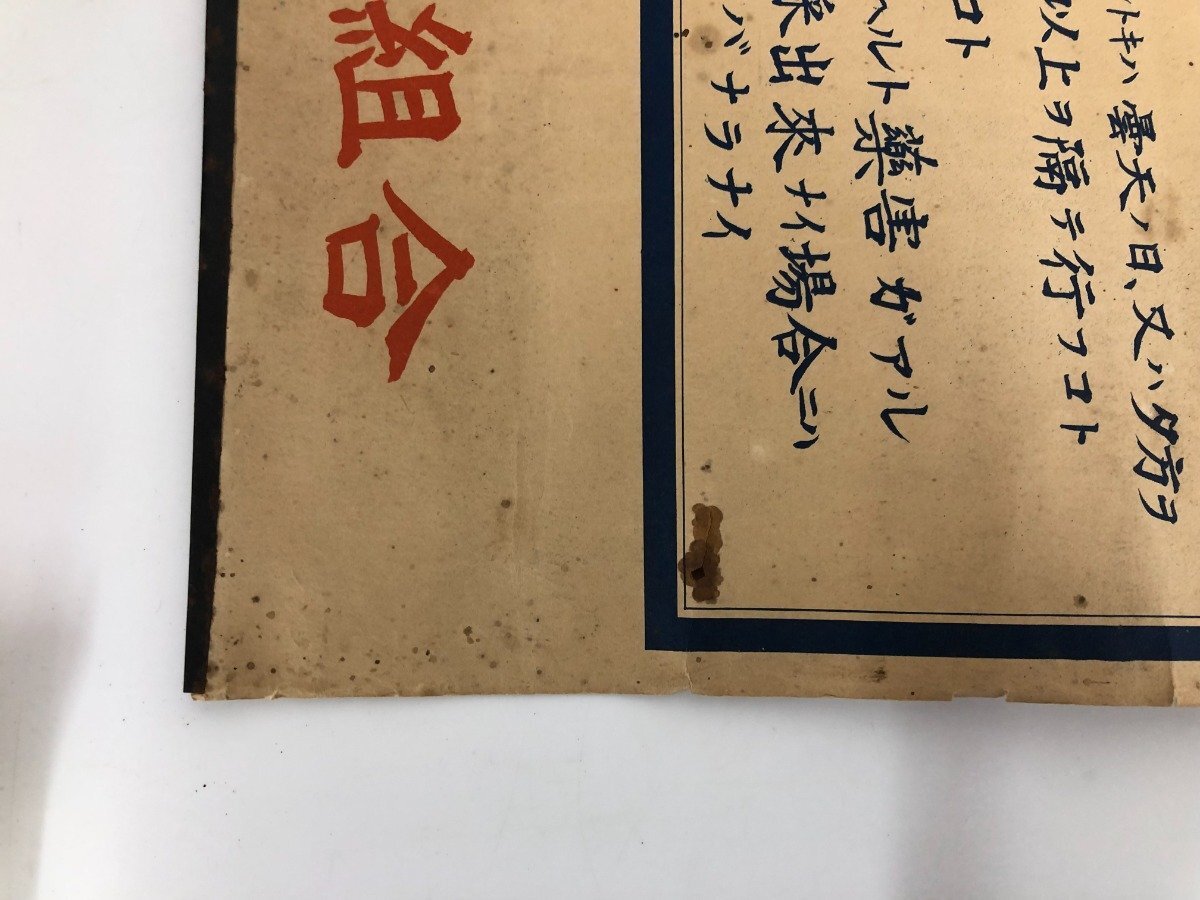 トキハ曇天ノ日、又ハ夕方ヲ
以上ヲ隔テ行フコト
コト
ヘルト藥害ガアル
出來ナイ場合ニハ
バナラナイ
組合